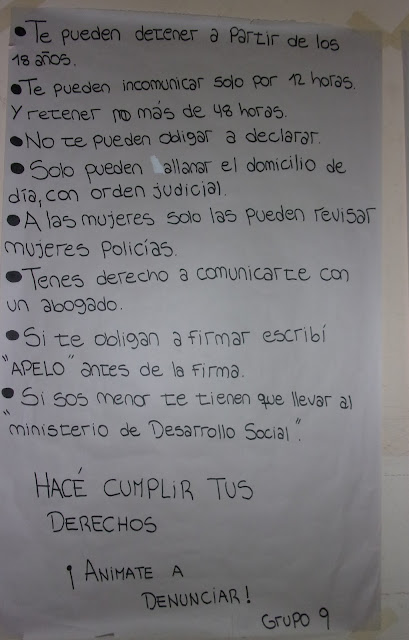 • Te pueden detener a partir de los
18 años.
• Te pueden incomunicar solo por 12 horas.
Y retener no más de 48 horas.
• No te pueden obligar a declarar.
• Solo pueden allanar el domicilio de
día, con orden judicial.
• A las mujeres solo las pueden revisar
mujeres Policías.
• Tenes derecho a comunicarte con
un abogado.
• Si te obligan a firmar escribí
"APELO" antes de la firma.
• Si sos menor te tienen que llevar al
"ministerio de Desarrollo Social".
HACÉ CUMPLIR TUS
DERECHOS
¡ANIMATE A
DENUNCIAR!
GRUPO 9